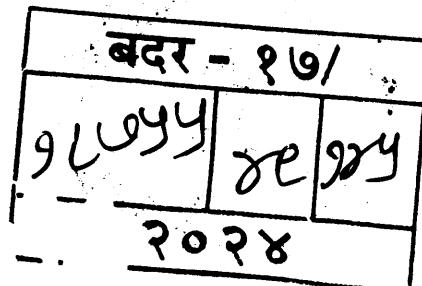 बदर - १७/
१८७५५ ४९ १४५
२०२४